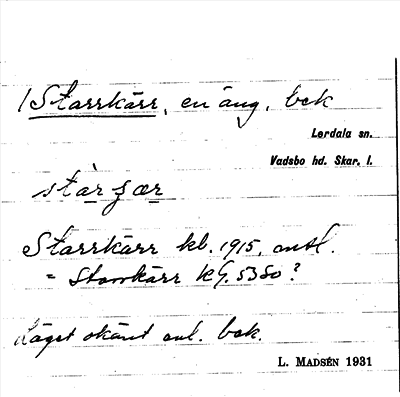 /Starrkärr, en äng, bek
Lerdala sn.
Vadsbo hd. Skar. l.
Starrkärr kb. 1915, antl.
= Starrkärr kG. 5350?
Läget okänt enl. bek.
L. MADSÉN 1931